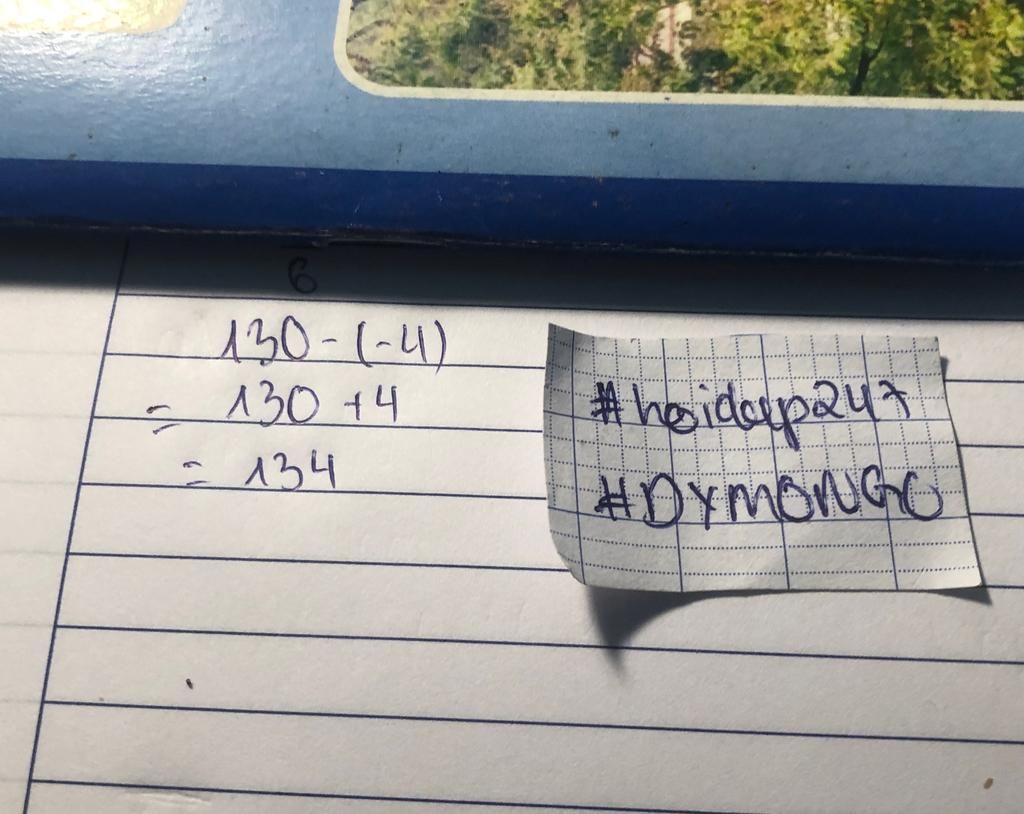 6
130-(-4)
= 130 +4
= 134
#hoidap247
#DYMONGO